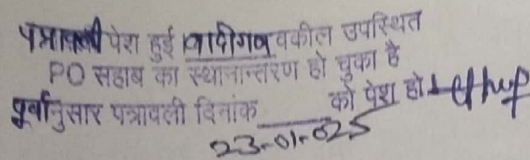 पत्रावली पेश हुई वादीगण वकील उपस्थित
PO सहाब का स्थानान्तरण हो चुका है
पूर्वानुसार पत्रावली दिनांक को पेश हो
23-01-025